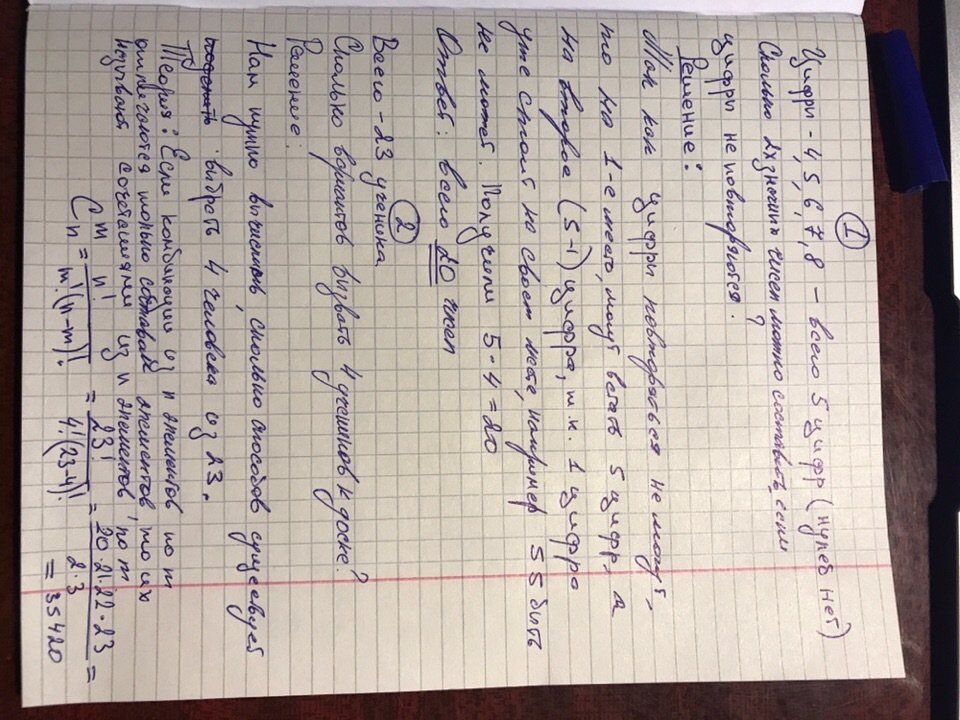 ①
Цифры - 4, 5, 6, 7, 8 - всего 5 цифр (нулей нет)
Сколько 2х значных чисел можно составить, если
цифры не повторяются?
Решение:
Так как цифры повторяться не могут,
то на 1-е место, могут встать 5 цифр, а
на второе (5-1) цифра, т.к. 1 цифра
уже стоит на своем месте, например 55 быть
не может. Получаем 5·4=20
Ответ: всего 20 чисел
②
Всего - 23 ученика
Сколько вариантов вызвать 4 учеников к доске?
Решение:
Нам нужно вычислить, сколько способов существует
выбрать 4 человека из 23.
Теория: Если комбинации из n элементов по m
отличаются только составом элементов, то их
называют сочетаниями из n элементов по m
Cₙᵐ = n! / m!(n-m)! = 23! / 4!(23-4)! = 20·21·22·23 / 2·3 =
= 35420